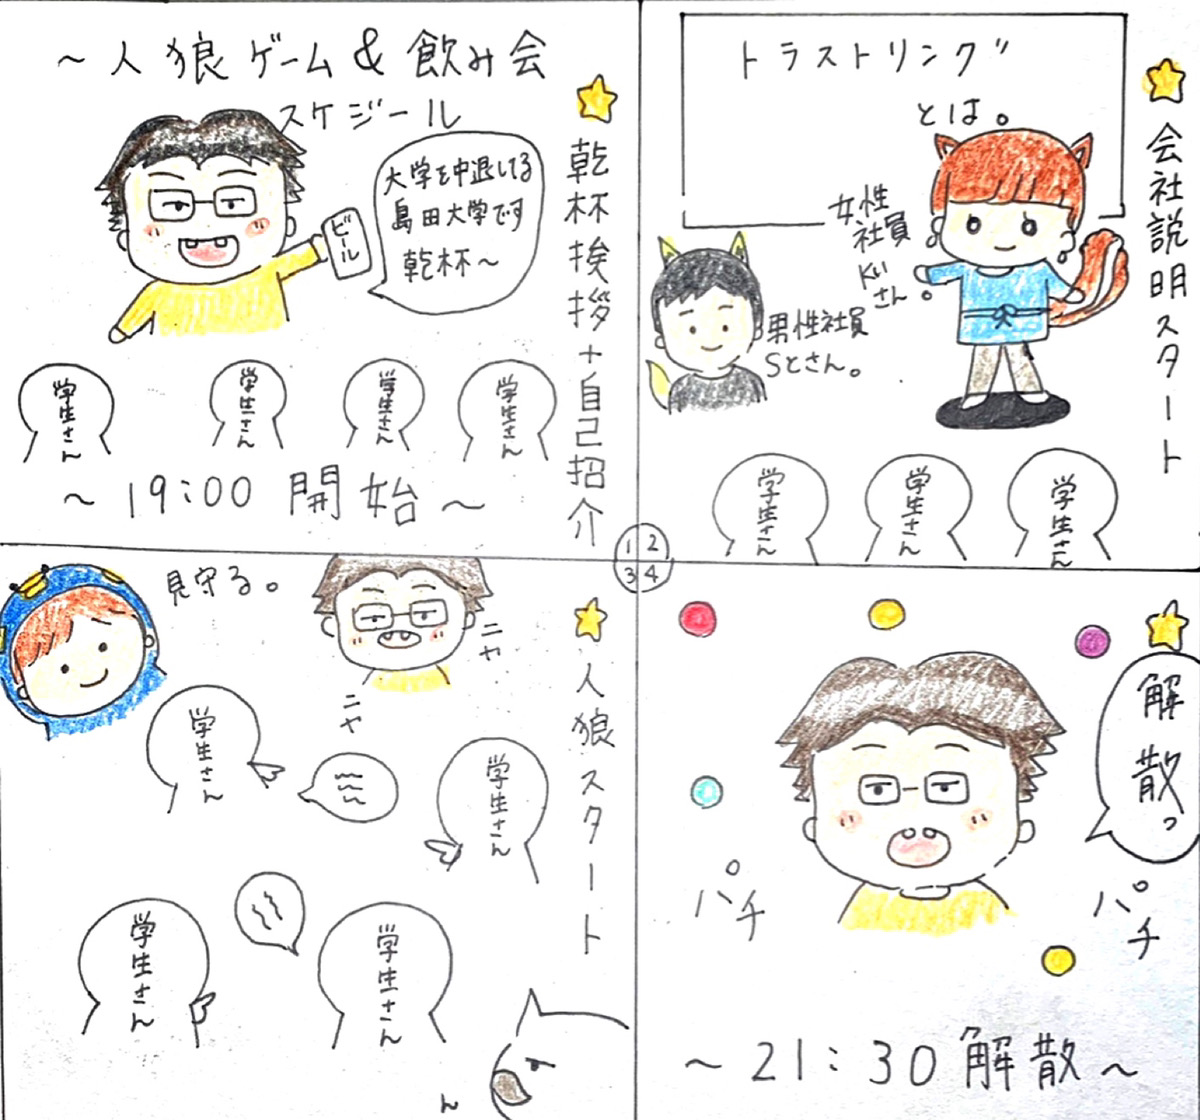 ～人狼ゲーム&飲み会
スケジール
大学を中退してる
島田大学です
乾杯～
ビール
乾杯挨拶+自己紹介
学生さん
学生さん
学生さん
学生さん
～19:00 開始～
トラストリング
とは。
会社説明スタート
女性
社員
Kい
さん。
男性社員
Sとさん。
学生さん
学生さん
学生さん
1
2
3
4
見守る。
ニヤ
ニヤ
人狼スタート
学生さん
学生さん
学生さん
学生さん
ん
解散っ
パチ
パチ
～21:30解散～